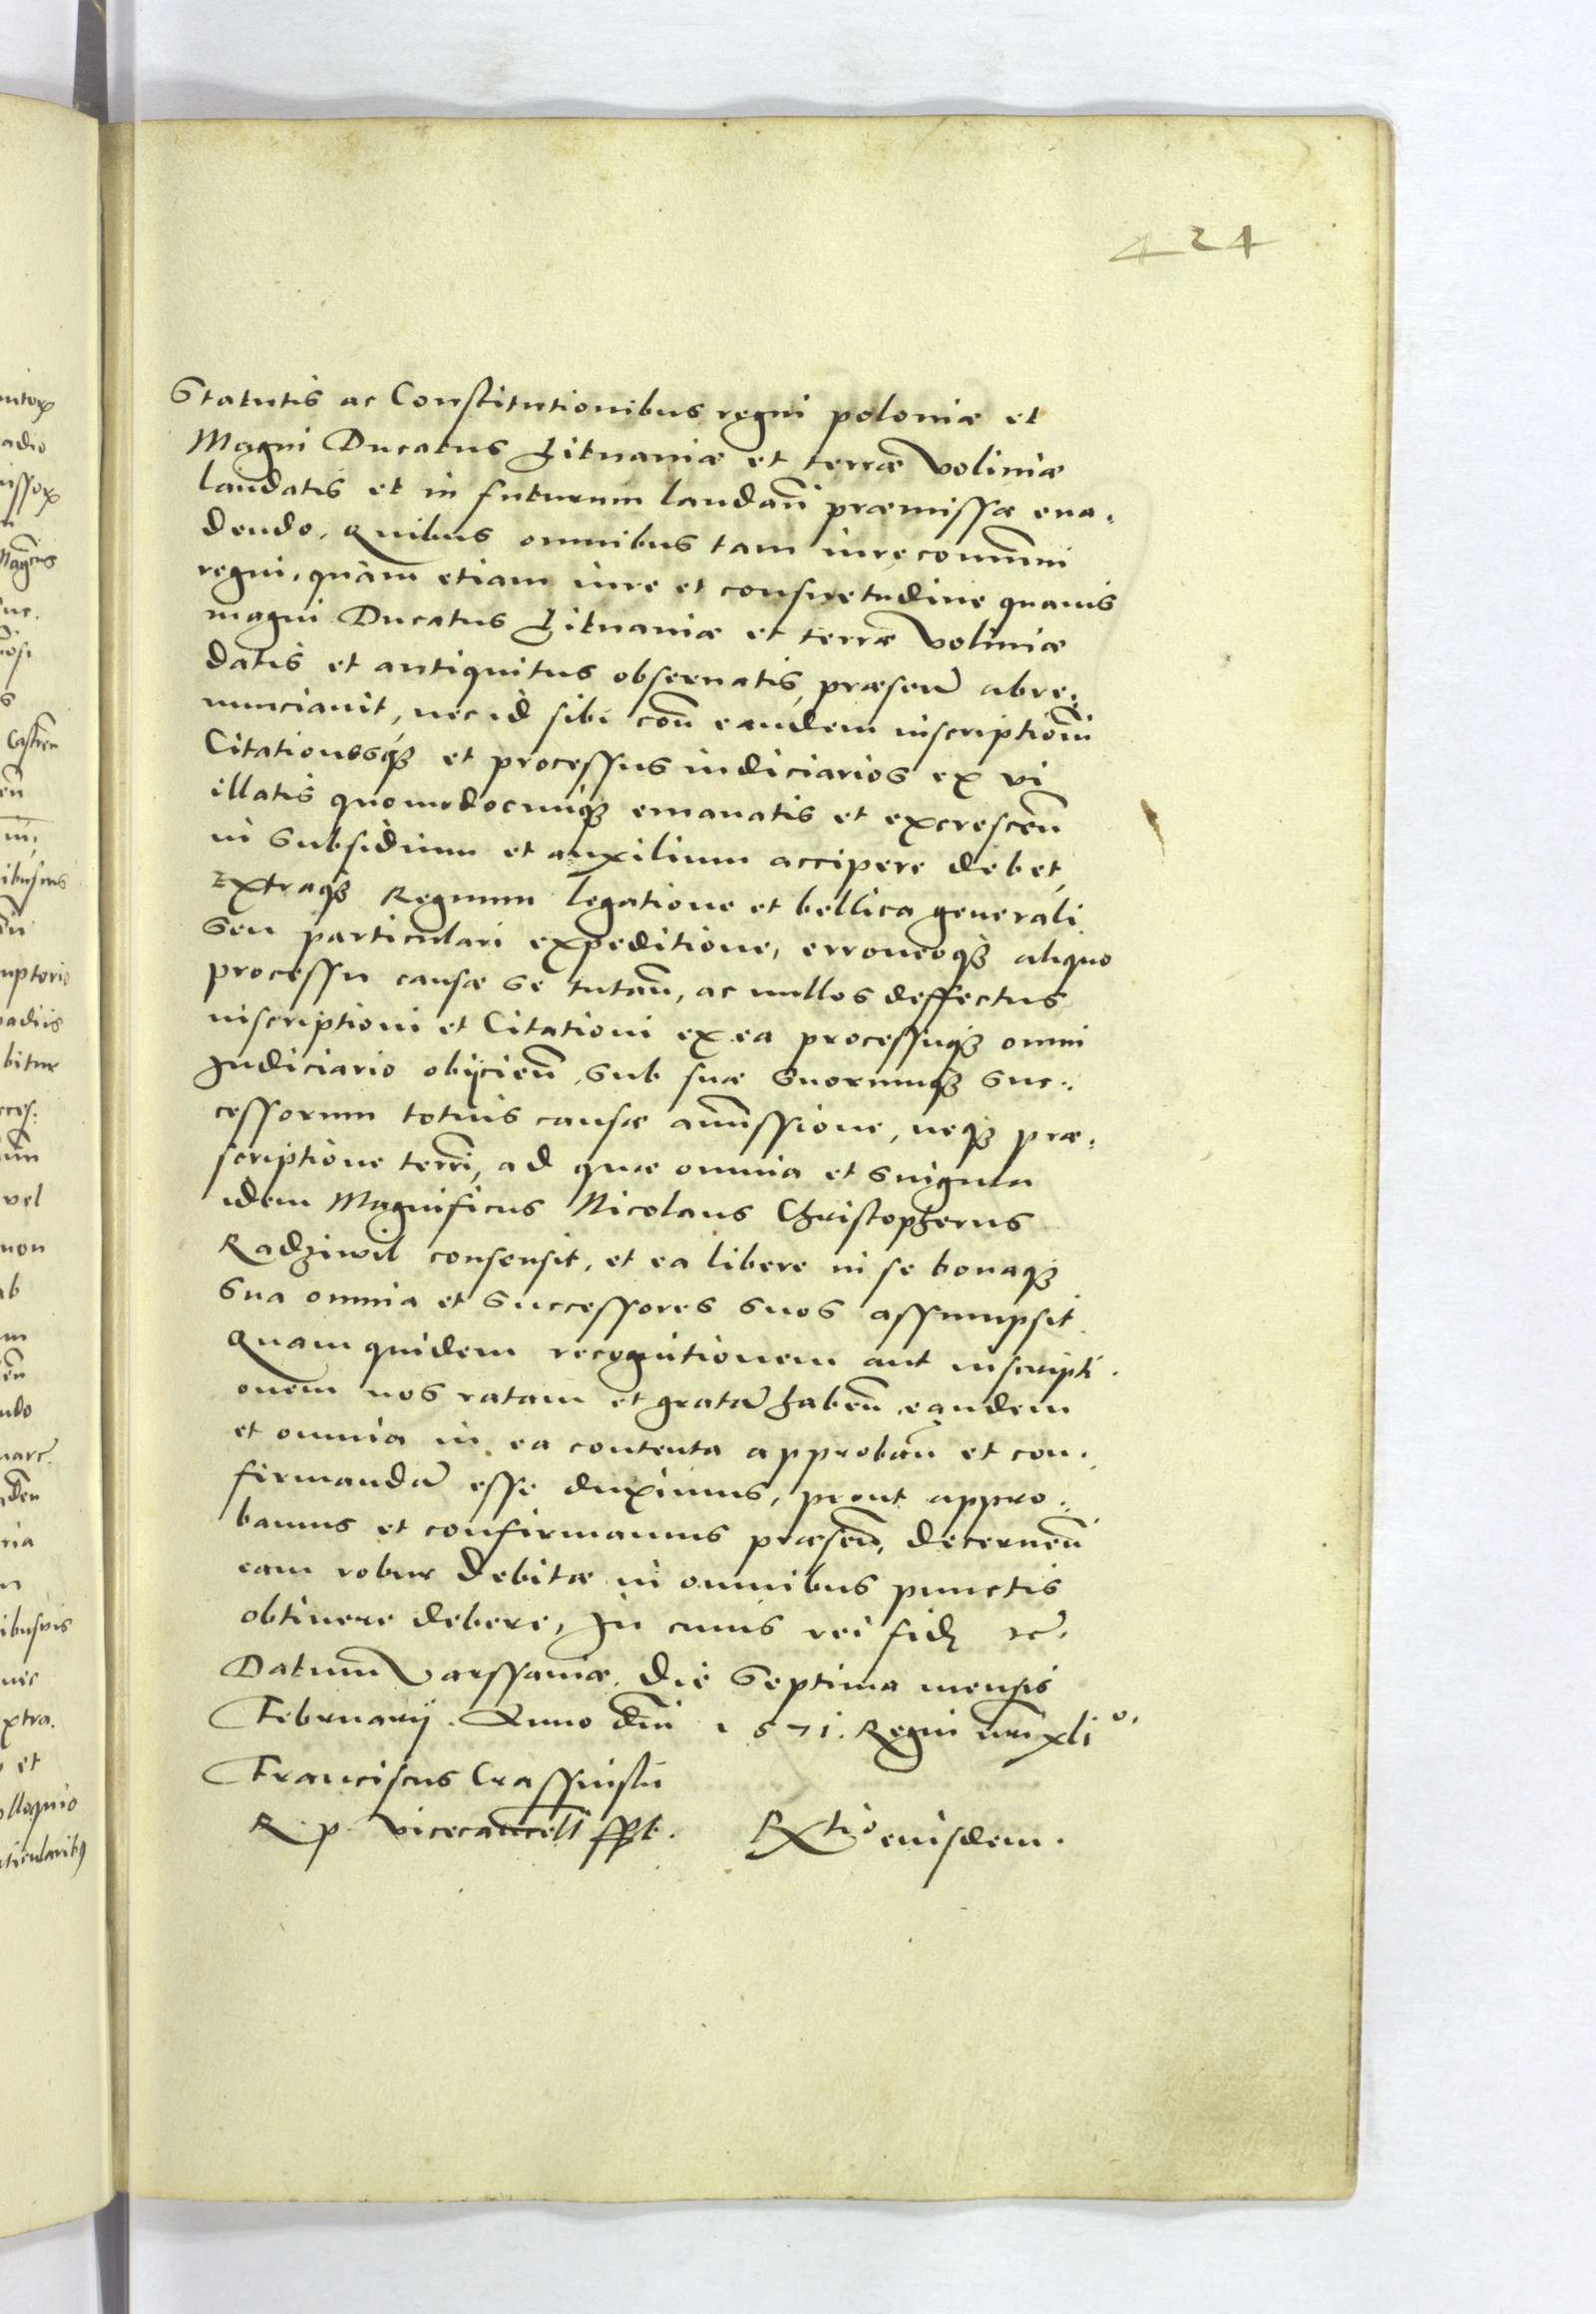 424
Statutis ac Constitutionibus regni poloniæ et
Magni Ducatus Lituaniæ et terræ Voliniæ
laudatis et in futurum laudan̄ præmissæ eua-
dendo. Quibus omnibus tam iure com̄uni
regni, quàm etiam iure et consuetudine quauis
magni Ducatus Lituaniæ et terræ Voliniæ
datis et antiquitus obseruatis, præsen̄ abre-
nunciauit, nec id sibi con̄ eandem inscriptiōm
Citationesq́ꝫ et processus iudiciarios ex vi
illatis quomodocunqꝫ emanatis et excrescen̄
in subsidium et auxilium accipere debet,
Extraqꝫ Regnum legatione et bellica generali
seu particulari expeditione, erroneoqꝫ aliquo
processu causæ se tutan̄, ac nullos deffectus
inscriptioni et Citationi ex ea processuqꝫ omni
Judiciario obijcien̄, sub suæ suorumqꝫ suc-
cessorum totius causæ amissione, neqꝫ præ-
scriptione terri, ad quæ omnia et singula
idem Magnificus Nicolaus Christopherus
Radziwil consensit, et ea libere in se bonaqꝫ
sua omnia et successores suos assumpsit.
Quam quidem recognitionem aut inscripti-
onem nos ratam et gratā haben̄ eandem
et omnia in ea contenta approban̄ et con-
firmandā esse duximus, prout appro-
bamus et confirmamus præsen̄, decernen̄
eam robur debitæ in omnibus punctis
obtinere debere, In cuius rei fidꝫ ꝛc̄.
Datum Varssauiæ. Die Septima mensis
Februarij. Anno dn̄i 1571. Regni nr̄i xliº.
Franciscus Crassinski
R. p. Vicecancell sspt. Rxtio eiusdem.